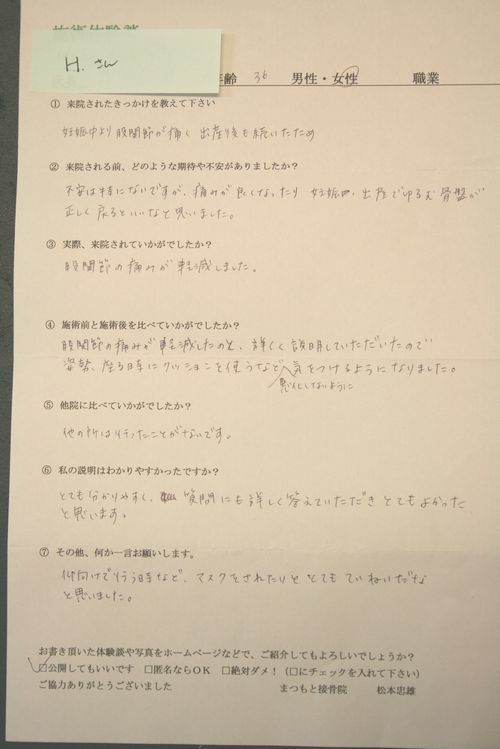 H. さん
年齢 36 男性・女性 職業
① 来院されたきっかけを教えて下さい
妊娠中より股関節が痛く出産後も続いたため
② 来院される前、どのような期待や不安がありましたか？
不安は特にないですが、痛みが良くなったり 妊娠中・出産でゆるむ骨盤が
正しく戻るといいなと思いました。
③ 実際、来院されていかがでしたか？
股関節の痛みが軽減しました。
④ 施術前と施術後を比べていかがでしたか？
股関節の痛みが軽減したのと、詳しく説明していただいたので
姿勢、座る時にクッションを使うなど気をつけるようになりました。
悪化しないように
⑤ 他院に比べていかがでしたか？
他の所は行ったことがないです。
⑥ 私の説明はわかりやすかったですか？
とても分かりやすく、質問にも詳しく答えていただき とてもよかった
と思います。
⑦ その他、何か一言お願いします。
仰向けで行う時など、マスクをされたりと とても ていねいだな
と思いました。
お書き頂いた体験談や写真をホームページなどで、ご紹介してもよろしいでしょうか？
□公開してもいいです □匿名ならＯＫ □絶対ダメ！（□にチェックを入れて下さい）
ご協力ありがとうございました まつもと接骨院 松本忠雄